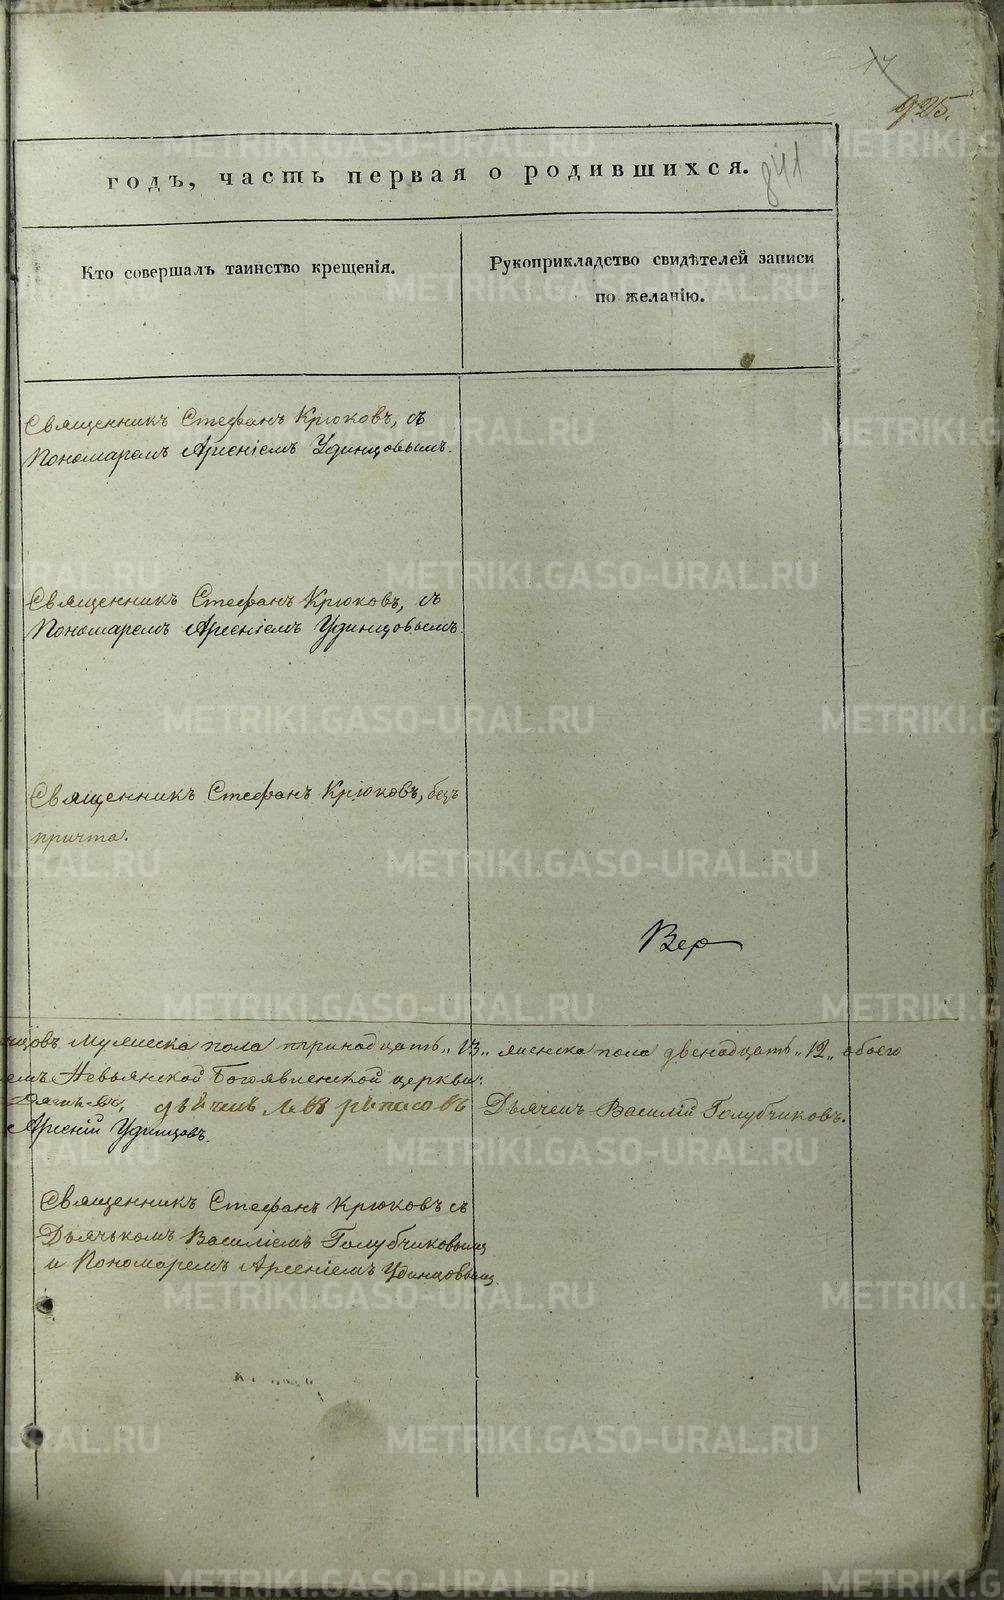 17
925.
841
годъ, часть первая о родившихся.
Кто совершалъ таинство крещенія.
Рукоприкладство свидѣтелей записи
по желанію.
Священникъ Стефанъ Крюковъ, съ
Пономаремъ Арсеніемъ Удинцовымъ.
Священникъ Стефанъ Крюковъ, съ
Пономаремъ Арсеніемъ Удинцовымъ.
Священникъ Стефанъ Крюковъ, безъ
причта.
Вер
мужеска пола тринадцать „13„ женска пола двенадцать „12„ обоего
Невьянской Богоявленской церкви:
Дьячекъ Василій Голубчиковъ.
Арсеній Удинцовъ.
Священникъ Стефанъ Крюковъ съ
Дьячькомъ Василіемъ Голубчиковымъ
и Пономаремъ Арсеніемъ Удинцовымъ
METRIKI.GASO-URAL.RU